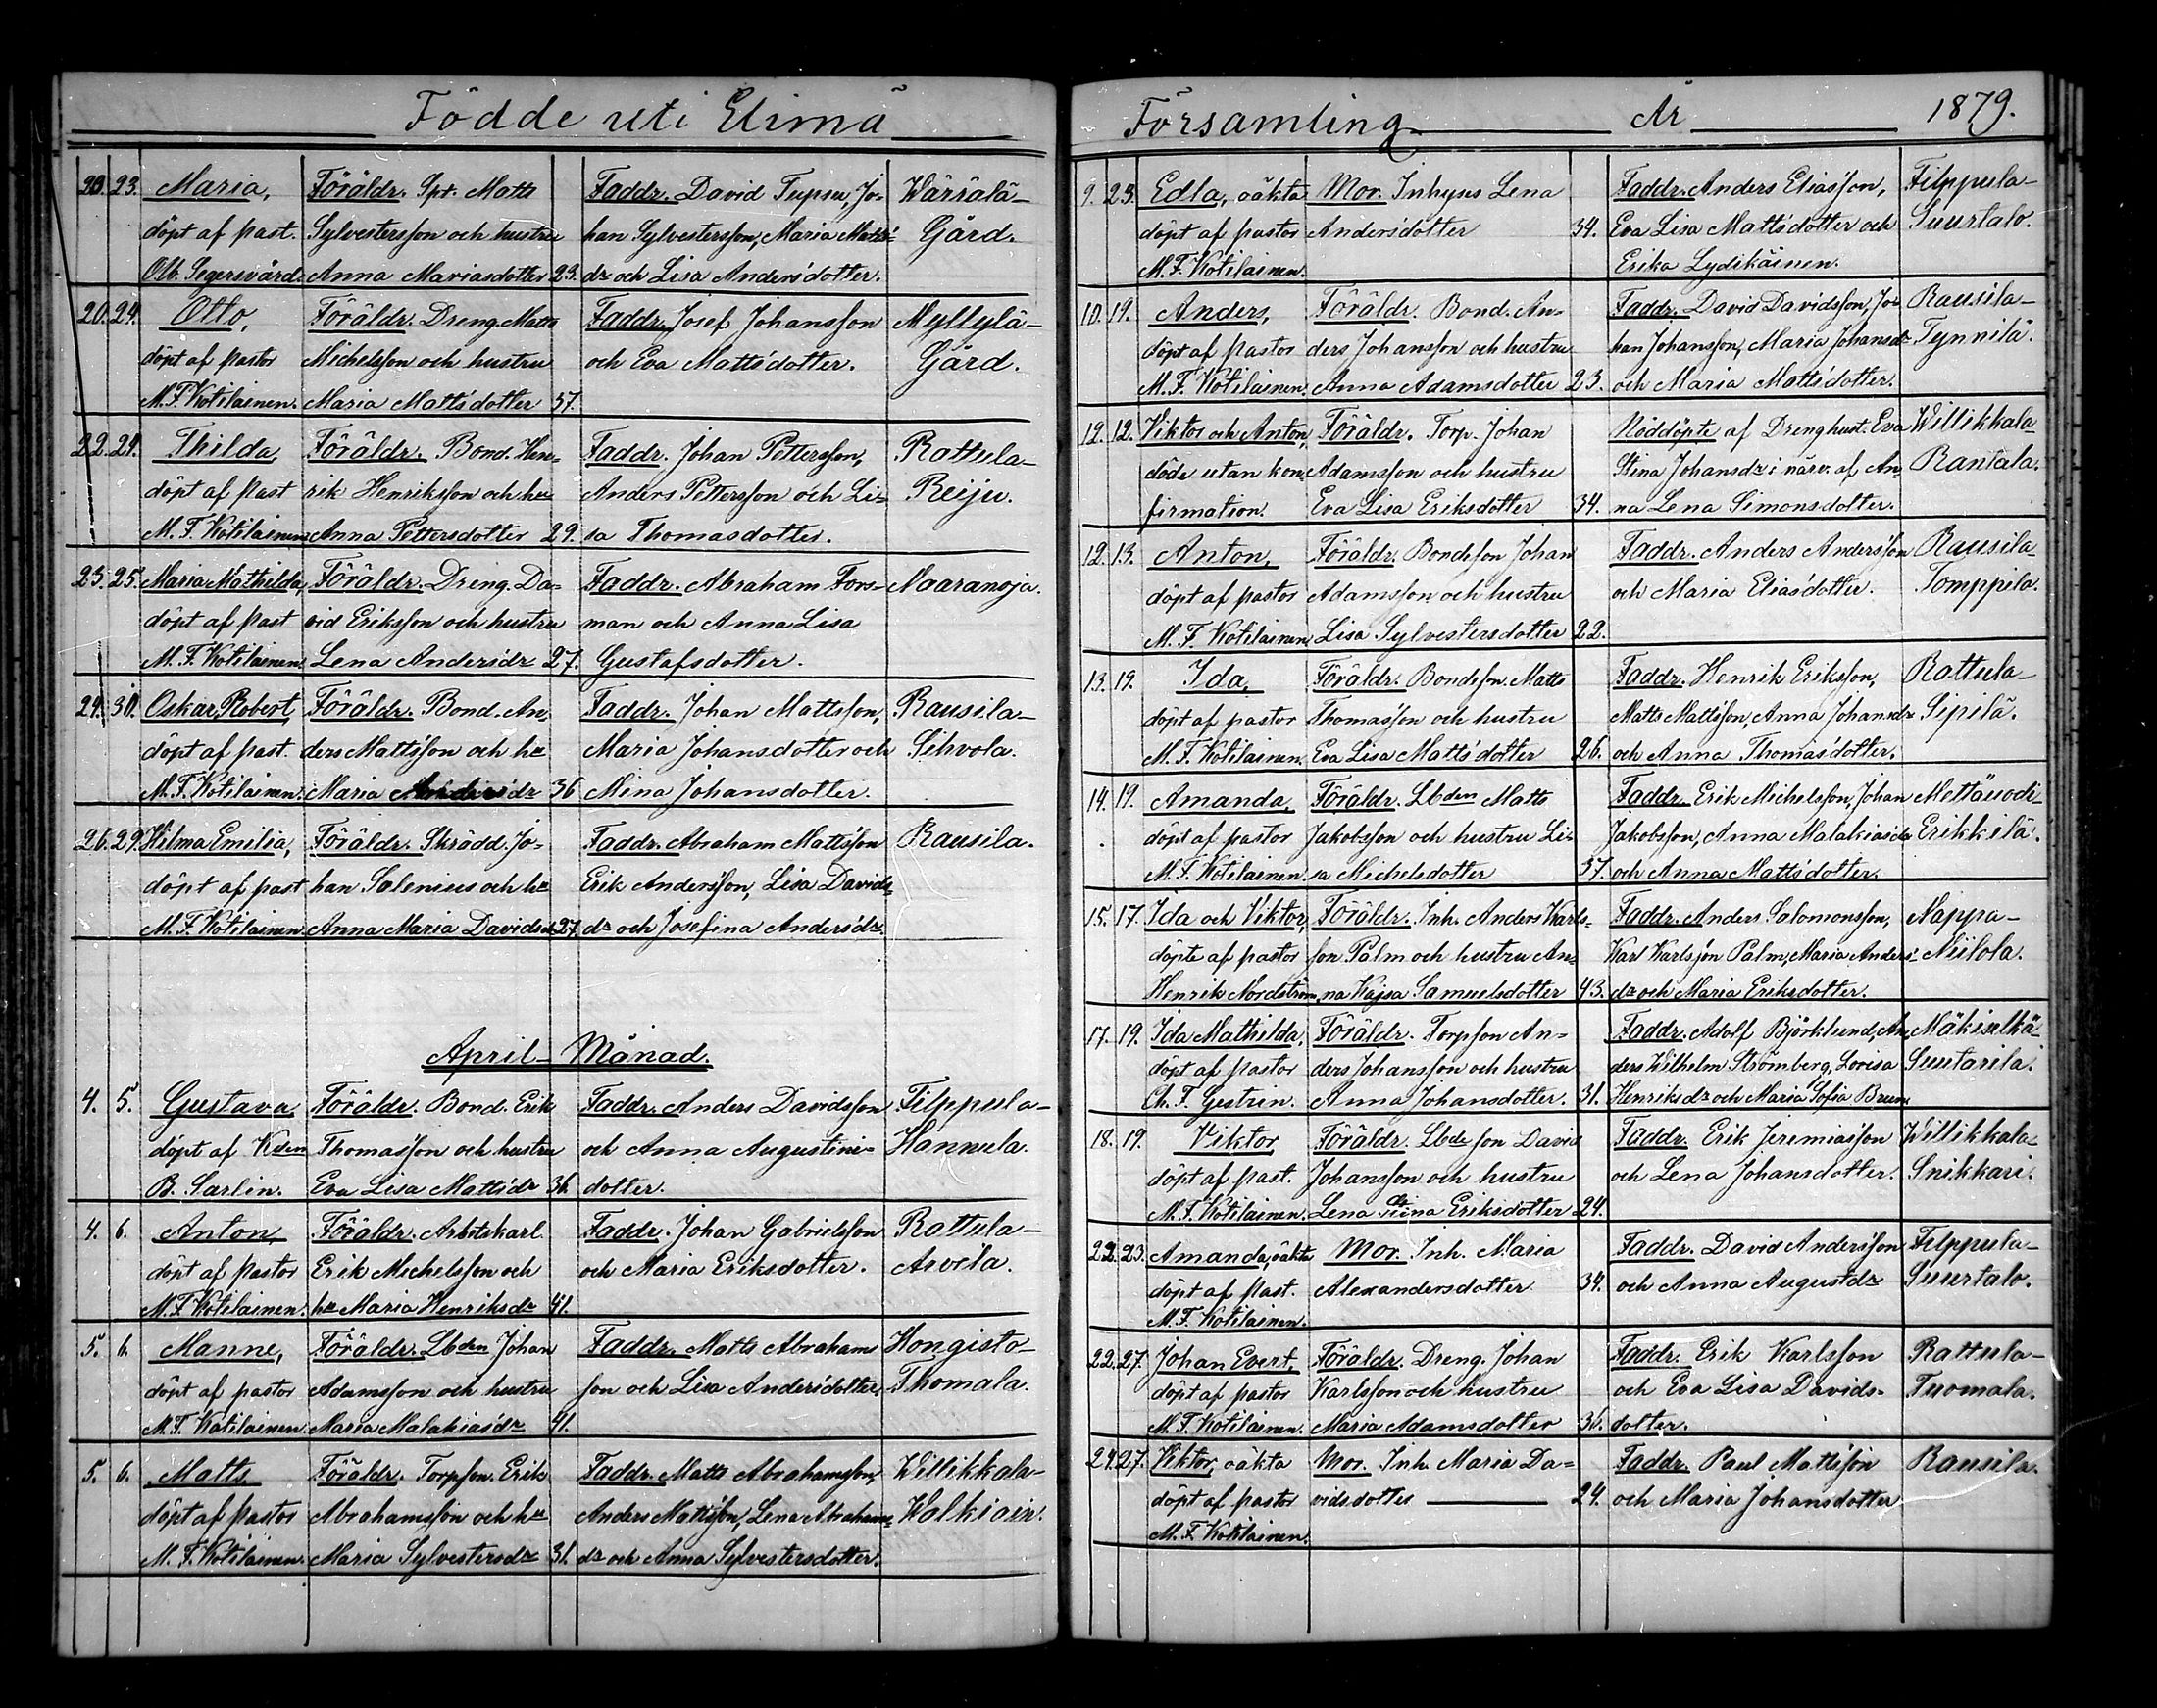 Födde uti Elimä
20. 23. Maria, Föräldr. Spr. Matts Faddr. David Tupsu, Jo- Wärrälä-
döpt af past. Sylvestersson och hustru han Sylvestersson, Maria Matts- Gård.
Olb. Segersvärd. Anna Mariasdotter 23. dr och Lisa Andersdotter.
20. 24. Otto, Föräldr. Dreng. Matts Faddr. Josef Johansson Myllylä-
döpt af pastor Michelsson och hustru och Eva Mattsdotter. Gård.
M. F. Kotilainen. Maria Mattsdotter 37.
22. 24. Thilda, Föräldr. Bond. Hen- Faddr. Johan Pettersson, Rattula-
döpt af past rik Henriksson och hu Anders Pettersson och Li- Reiju.
M. F. Kotilainen Anna Pettersdotter 29. sa Thomasdotter.
23. 25. Maria Mathilda, Föräldr. Dreng. Da- Faddr. Abraham Fors- Naaranoja.
döpt af past vid Eriksson och hustru man och Anna Lisa
M. F. Kotilainen. Lena Andersdr 27. Gustafsdotter.
24. 30. Oskar Robert, Föräldr. Bond. An- Faddr. Johan Mattsson, Rausila-
döpt af past. ders Mattsson och hu Maria Johansdotter och Sihvola.
M. F. Kotilainen. Maria Andersdr 36 Mina Johansdotter.
26. 29. Hilma Emilia, Föräldr. Skrädd. Jo- Faddr. Abraham Mattsson Rausila.
döpt af past han Salenius och hu Erik Andersson, Lisa Davids-
M. F. Kotilainen. Anna Maria Davidsdr 27. dr och Josefina Andersdr
April Månad.
4. 5. Gustava, Föräldr. Bond. Erik Faddr. Anders Davidsson Filppula-
döpt af Kden Thomasson och hustru och Anna Augustini- Hannula.
B. Sarlin. Eva Lisa Mattsdr 36. dotter.
4. 6. Anton, Föräldr. Arbetskarl Faddr. Johan Gabrielsson Rattula-
döpt af pastor Erik Michelsson och och Maria Eriksdotter. Arvela.
M. F. Kotilainen. hu Maria Henriksdr 41.
5. 6. Manne, Föräldr. Lbden Johan Faddr. Matts Abrahams Hongisto-
döpt af pastor Adamsson och hustru son och Lisa Andersdotter. Thomala.
M. F. Kotilainen. Maria Malakiasdr 41.
5. 6. Matts Föräldr. Torpson Erik Faddr. Matts Abrahamsson, Willikkala-
döpt af pastor Abrahamsson och hu Anders Mattsson, Lena Abrahams- Walkiain.
M. F. Kotilainen. Maria Sylvestersdr 31. dr och Anna Sylvestersdotter.
Församling År 1879.
9. 23. Edla, oäkta Mor. Inhyses Lena Faddr. Anders Eliasson, Filppula-
döpt af pastor Andersdotter 34. Eva Lisa Mattsdotter och Suurtalo.
M. F. Kotilainen. Erika Lydikäinen.
10. 19. Anders, Föräldr. Bond. An- Faddr. David Davidsson, Jo- Rausila-
döpt af pastor ders Johansson och hustru han Johansson, Maria Johansdr Tynnilä.
M. F. Kotilainen. Anna Adamsdotter 23. och Maria Mattsdotter.
12. 12. Viktor och Anton, Föräldr. Torp. Johan Nöddöpte af Drenghust. Eva Willikkala-
döde utan kon- Adamsson och hustru Stina Johansdr i närv. af An- Rantala.
firmation. Eva Lisa Eriksdotter 34. na Lena Simonsdotter.
12. 13. Anton, Föräldr. Bondsson Johan Faddr. Anders Andersson Rausila-
döpt af pastor Adamsson och hustru och Maria Eliasdotter. Tomppila.
M. F. Kotilainen. Lisa Sylvestersdotter 22.
13. 19. Ida, Föräldr. Bondsson. Matts Faddr. Henrik Eriksson, Rattula-
döpt af pastor Thomasson och hustru Matts Mattsson, Anna Johansdr Sipilä.
M. F. Kotilainen. Eva Lisa Mattsdotter 26. och Anna Thomasdotter.
14. 19. Amanda, Föräldr. Lbden Matts Faddr. Erik Michelsson, Johan Mettäuodi-
döpt af pastor Jakobsson och hustru Li- Jakobsson, Anna Malakiasdr Erikkilä.
M. F. Kotilainen. sa Michelsdotter 37. och Anna Mattsdotter.
15. 17. Ida och Viktor, Föräldr. Inh. Anders Karls- Faddr. Anders Salomonsson, Nappa-
döpte af pastor son Palm och hustru An- Karl Karlsson Palm, Maria Anders- Niilola.
Henrik Nordström. na Kajsa Samuelsdotter 43. dr och Maria Eriksdotter.
17. 19. Ida Mathilda, Föräldr. Torpson An- Faddr. Adolf Björklund, An- Mäkiselkä-
döpt af pastor ders Johansson och hustru ders Wilhelm Strömberg, Lovisa Suutarila.
Ch. F. Gestrin. Anna Johansdotter. 31. Henriksdr och Maria Sofia Brun.
18. 19. Viktor Föräldr. Lbde son David Faddr. Erik Jeremiasson Willikkala-
döpt af past. Johansson och hustru och Lena Johansdotter. Snikkari.
M. F. Kotilainen. Lena Stina Eriksdotter 24.
22. 23. Amanda, oäkta Mor. Inh. Maria Faddr. David Andersson Filppula-
döpt af past. Alexandersdotter 34. och Anna Augustdr Suurtalo.
M. F. Kotilainen.
22. 27. Johan Evert, Föräldr. Dreng. Johan Faddr. Erik Karlsson Rattula-
döpt af pastor Karlsson och hustru och Eva Lisa Davids- Tuomala.
M. F. Kotilainen. Maria Adamsdotter 36. dotter.
24. 27. Viktor, oäkta Mor. Inh. Maria Da- Faddr. Paul Mattsson Rausila.
döpt af pastor vidsdotter 24. och Maria Johansdotter
M. F. Kotilainen.